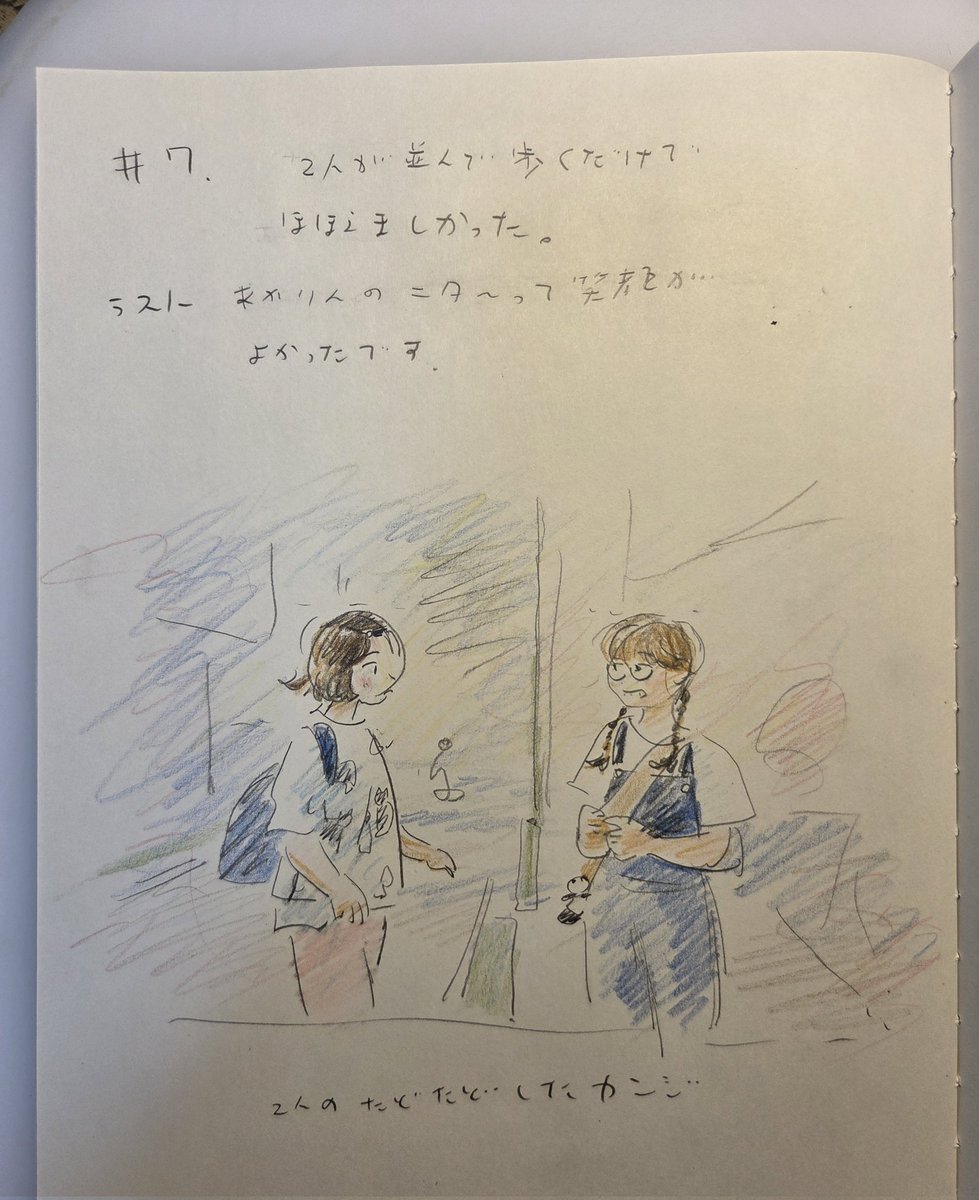 #7. 2人が並んで歩くだけで
ほほえましかった。
ラスト あかりんのニタ〜って笑顔が
よかったです.
2人のたどたどしたカンジ